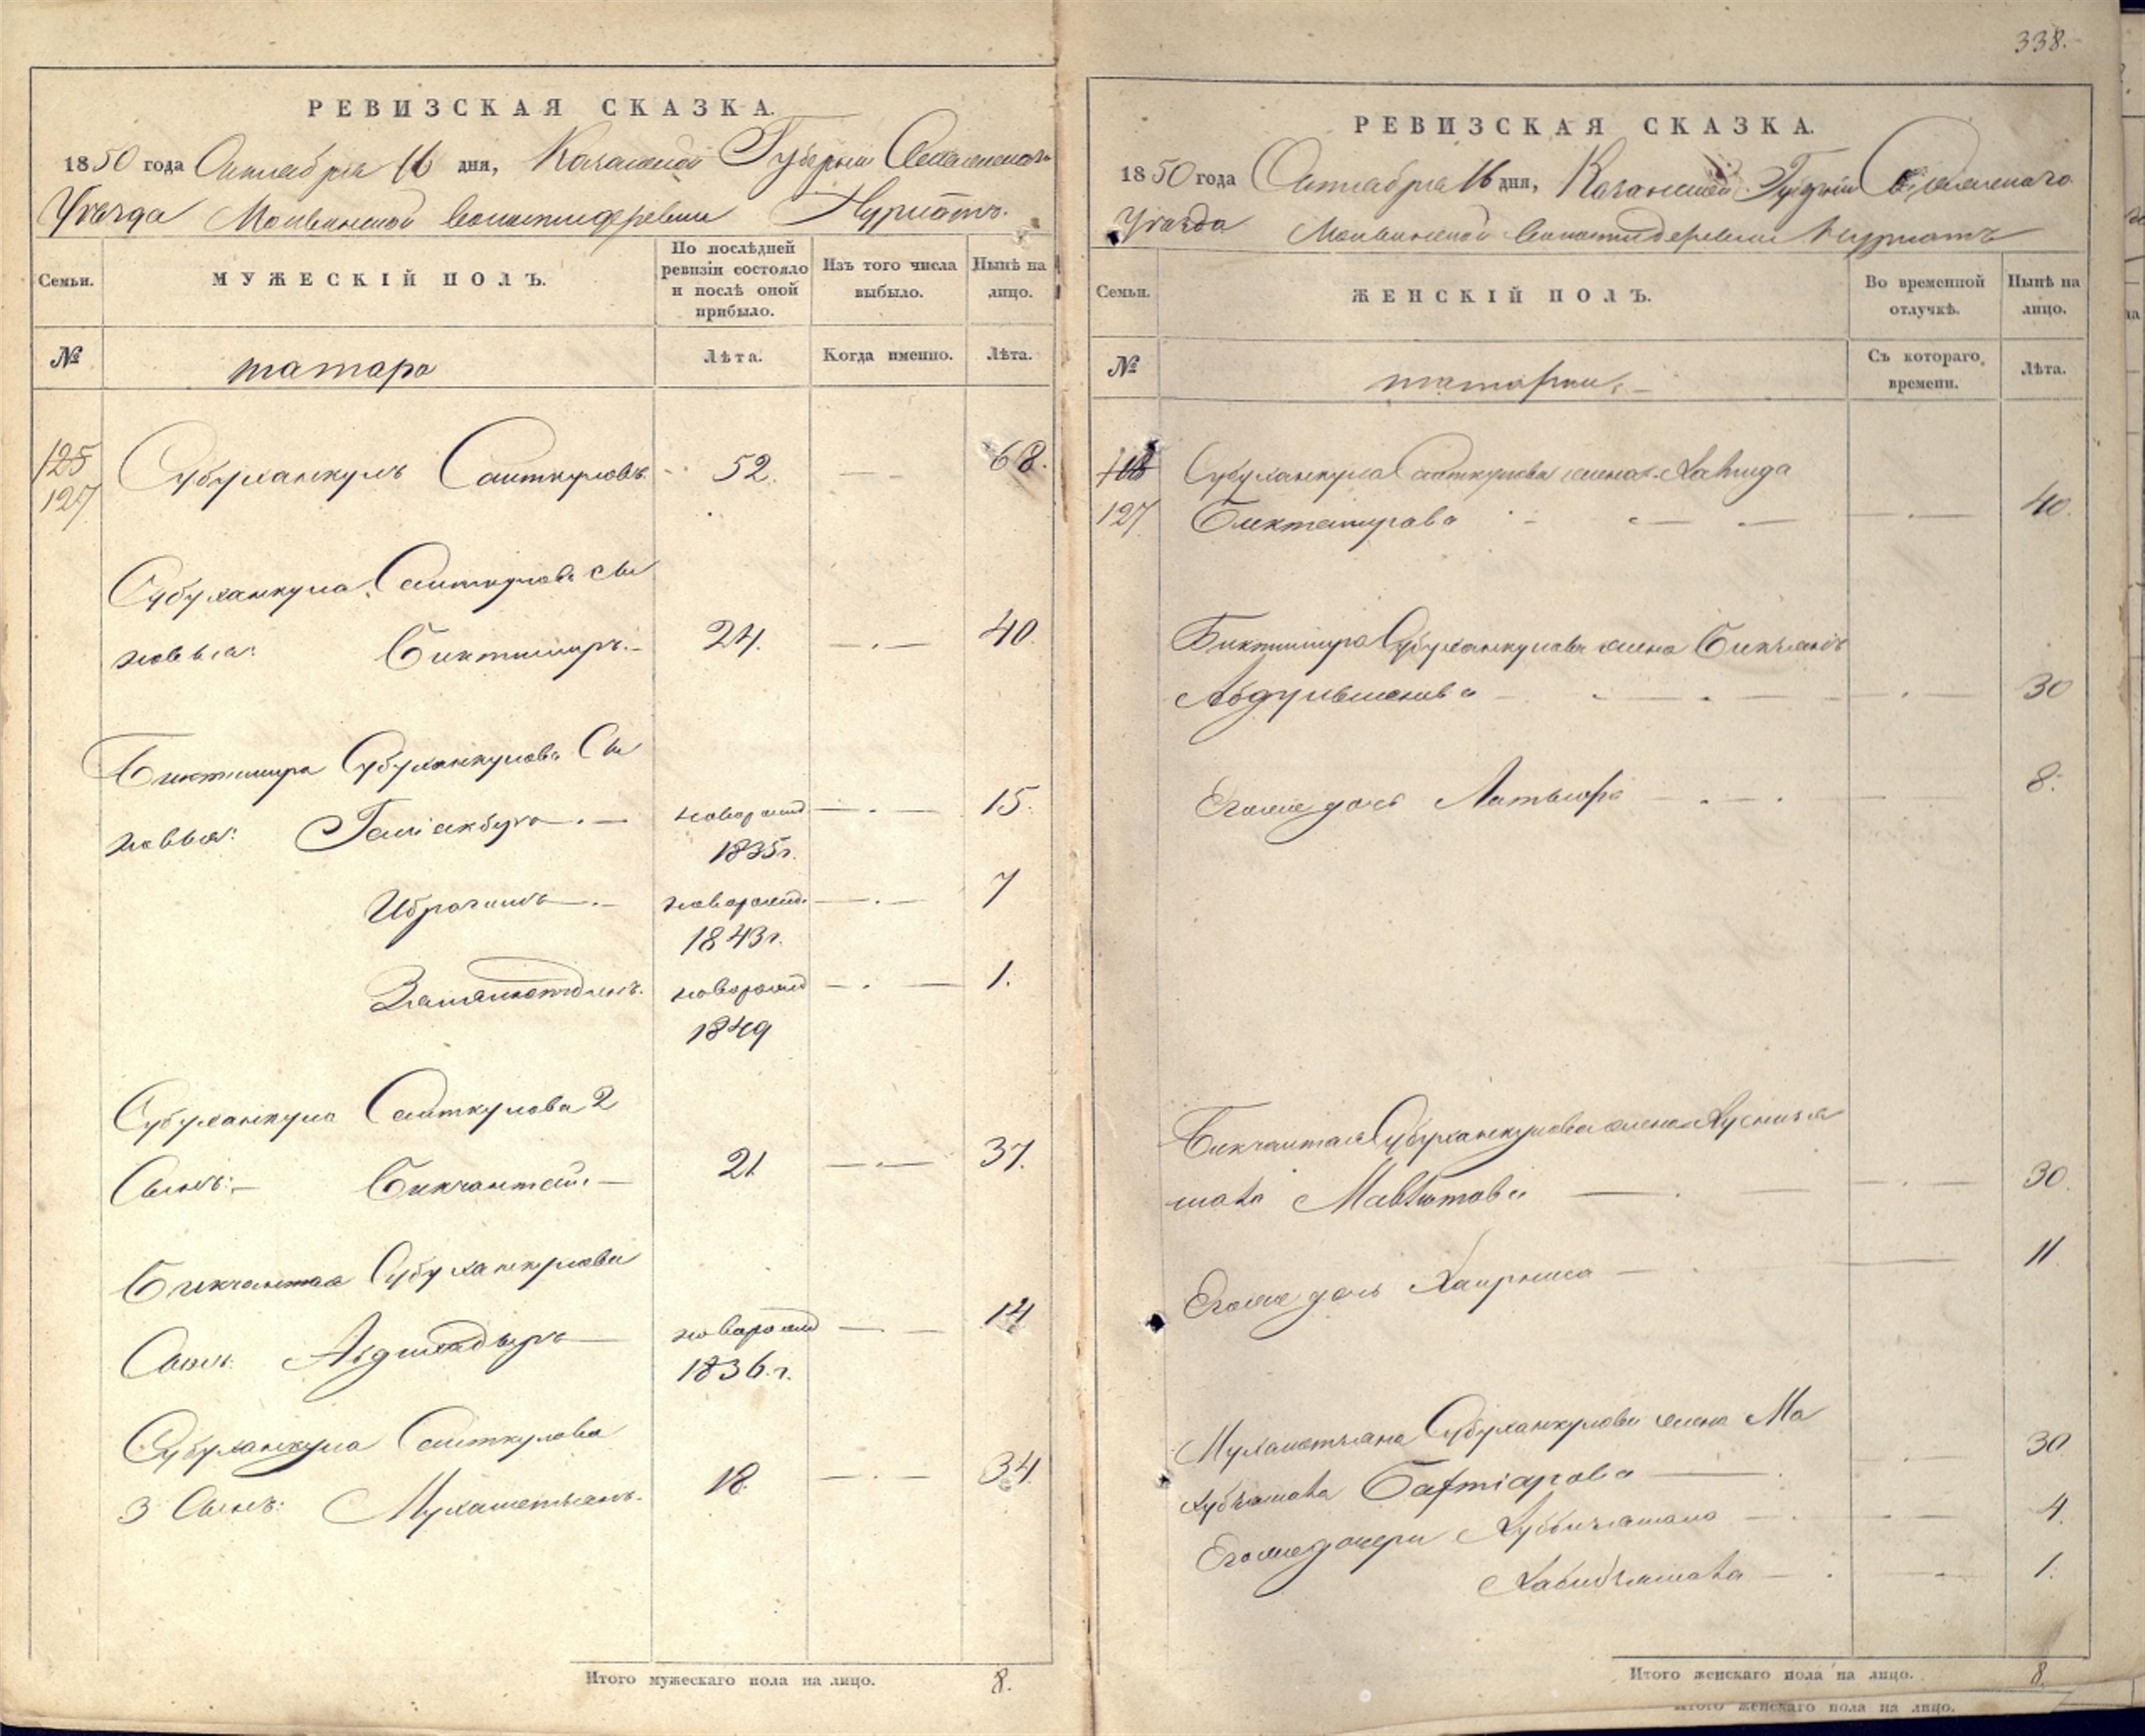 РЕВИЗСКАЯ СКАЗКА.
1850 года Октября 16 дня, Казанской Губернии
Уезда Моквинской волости деревни Нурлатъ.
Семьи.
МУЖЕСКІЙ ПОЛЪ.
По послѣдней ревизіи состояло и послѣ оной прибыло.
Изъ того числа выбыло.
Нынѣ на лицо.
№
татара
Лѣта.
Когда именно.
Лѣта.
125 Субуханкулъ Саиткуловъ 52. — 68.
127
Субуханкула Саиткулова сы
новья: Биктимиръ. 24. — 40.
Биктимира Субуханкулова Сы
новья: Галiакбаръ новорожд — 15.
1835г.
Ибрагимъ новорожд. — 7
1843г.
новорожд — 1.
1849
Субуханкула Саиткулова 2
Сынъ: Бикчантай 21 — 37.
Бикчантая Субуханкулова
Сынъ новорожд — 14
1836.г.
Субуханкула Саиткулова
3 Сынъ: Мухаметьянъ. 18. — 34.
Итого мужескаго пола на лицо. 8.
338.
РЕВИЗСКАЯ СКАЗКА.
1850 года Октября 16 дня, Казанской Губерніи
Уезда Моквинской волости деревни Нурлатъ
Семьи.
ЖЕНСКІЙ ПОЛЪ.
Во временной отлучкѣ.
Нынѣ на лицо.
№
татарки
Съ котораго времени.
Лѣта.
Субуханкула Саиткулова жена
127 Биктемирова — 40.
Биктимира Субуханкулова жена
— 30
Егоже дочь — 8.
Бикчантая Субуханкулова жена
— 30.
Егоже дочь Хаирниса — 11.
Мухаметьяна Субуханкулова жена Ма
хубжамала Бахтiарова — 30
Егоже дочери — 4.
Хабибжамала — 1.
Итого женскаго пола на лицо. 8.
Итого женскаго пола на лицо.